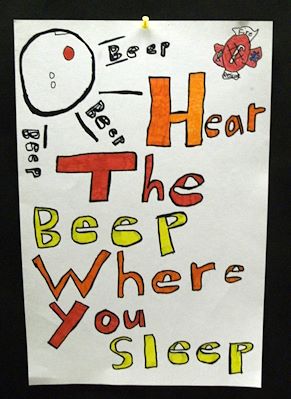 Beep
Beep
Beep
Hear
The
Beep
Where
You
Sleep